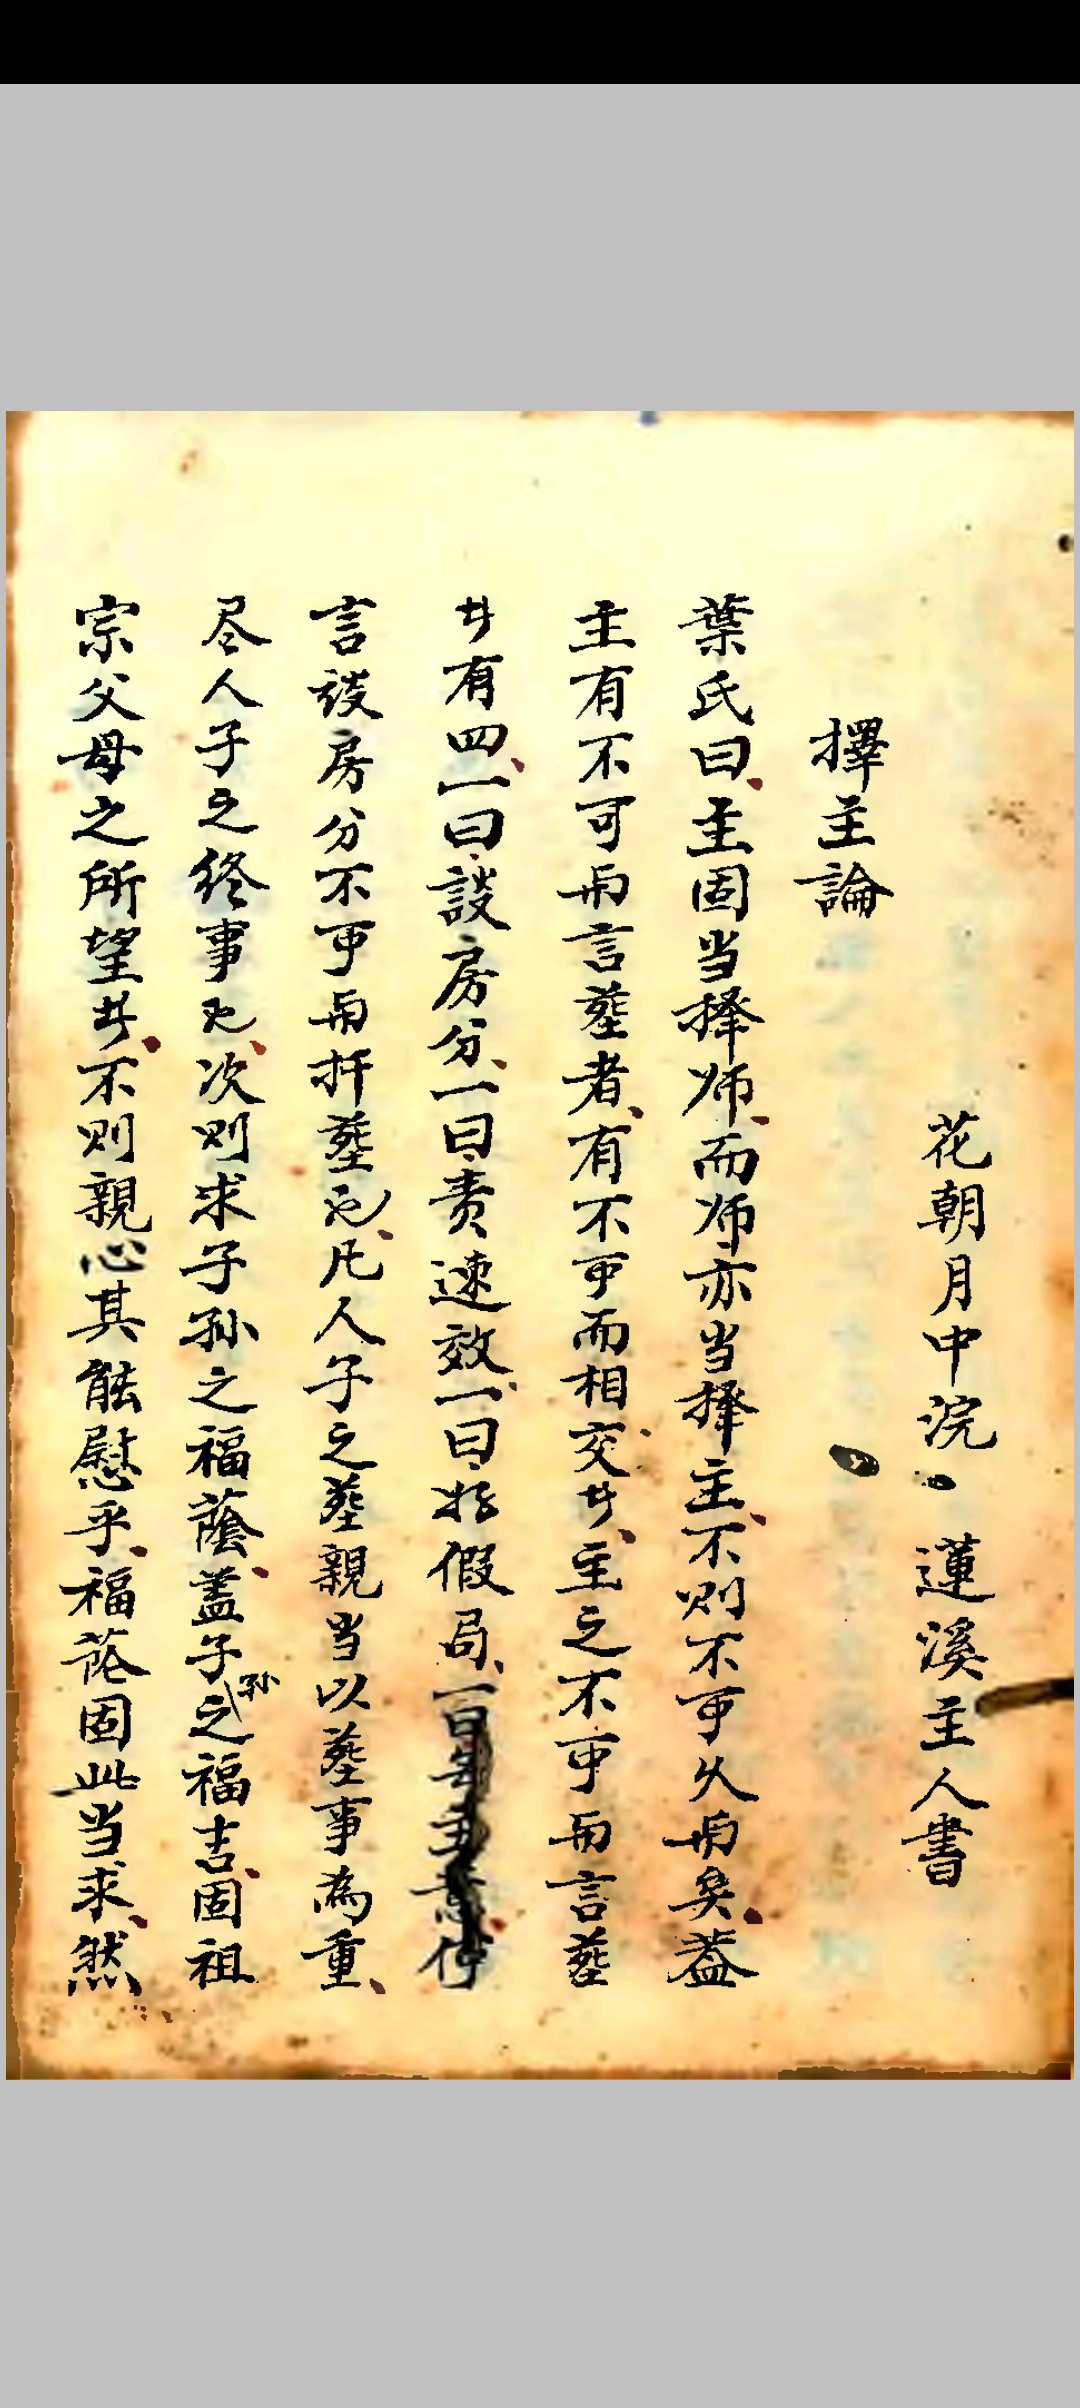 花朝月中浣 蓮溪主人書
擇主論
葉氏曰主固当择师而师亦当择主不则不可火而矣蓋
主有不可而言塟者有不可而相交者主之不可而言塟
者有四一曰談房分一曰责速效一曰假局一曰
言談房分不可而扦塟也凡人子之塟親当以塟事為重
尽人子之终事也次则求子孙之福蔭盖子孙之福吉固祖
宗父母之所望者不则親心其能慰乎福固此当求然